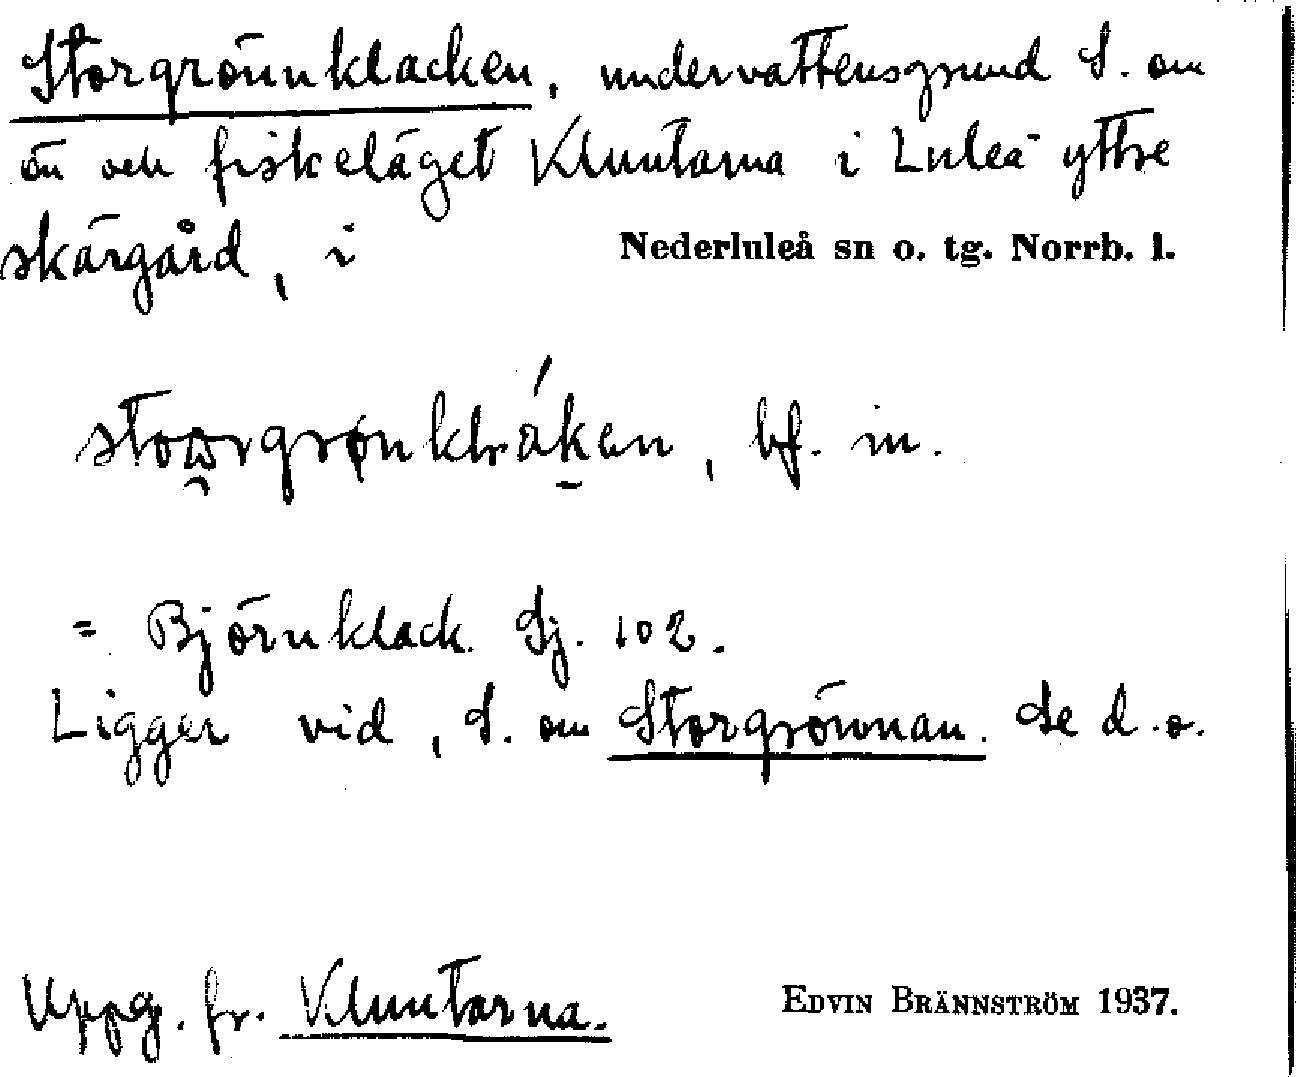 Storgrönnklacken, undervattensgrund S. om
ön och fiskeläget Kluntarna i Luleå yttre
skärgård, i Nederluleå sn o. tg. Norrb. l.
bf. in.
= Björnklack Sj. 102.
Ligger vid, S. om Storgrönnan. Se d. o.
Uppg. fr. Kluntarna. EDVIN BRÄNNSTRÖM 1937.